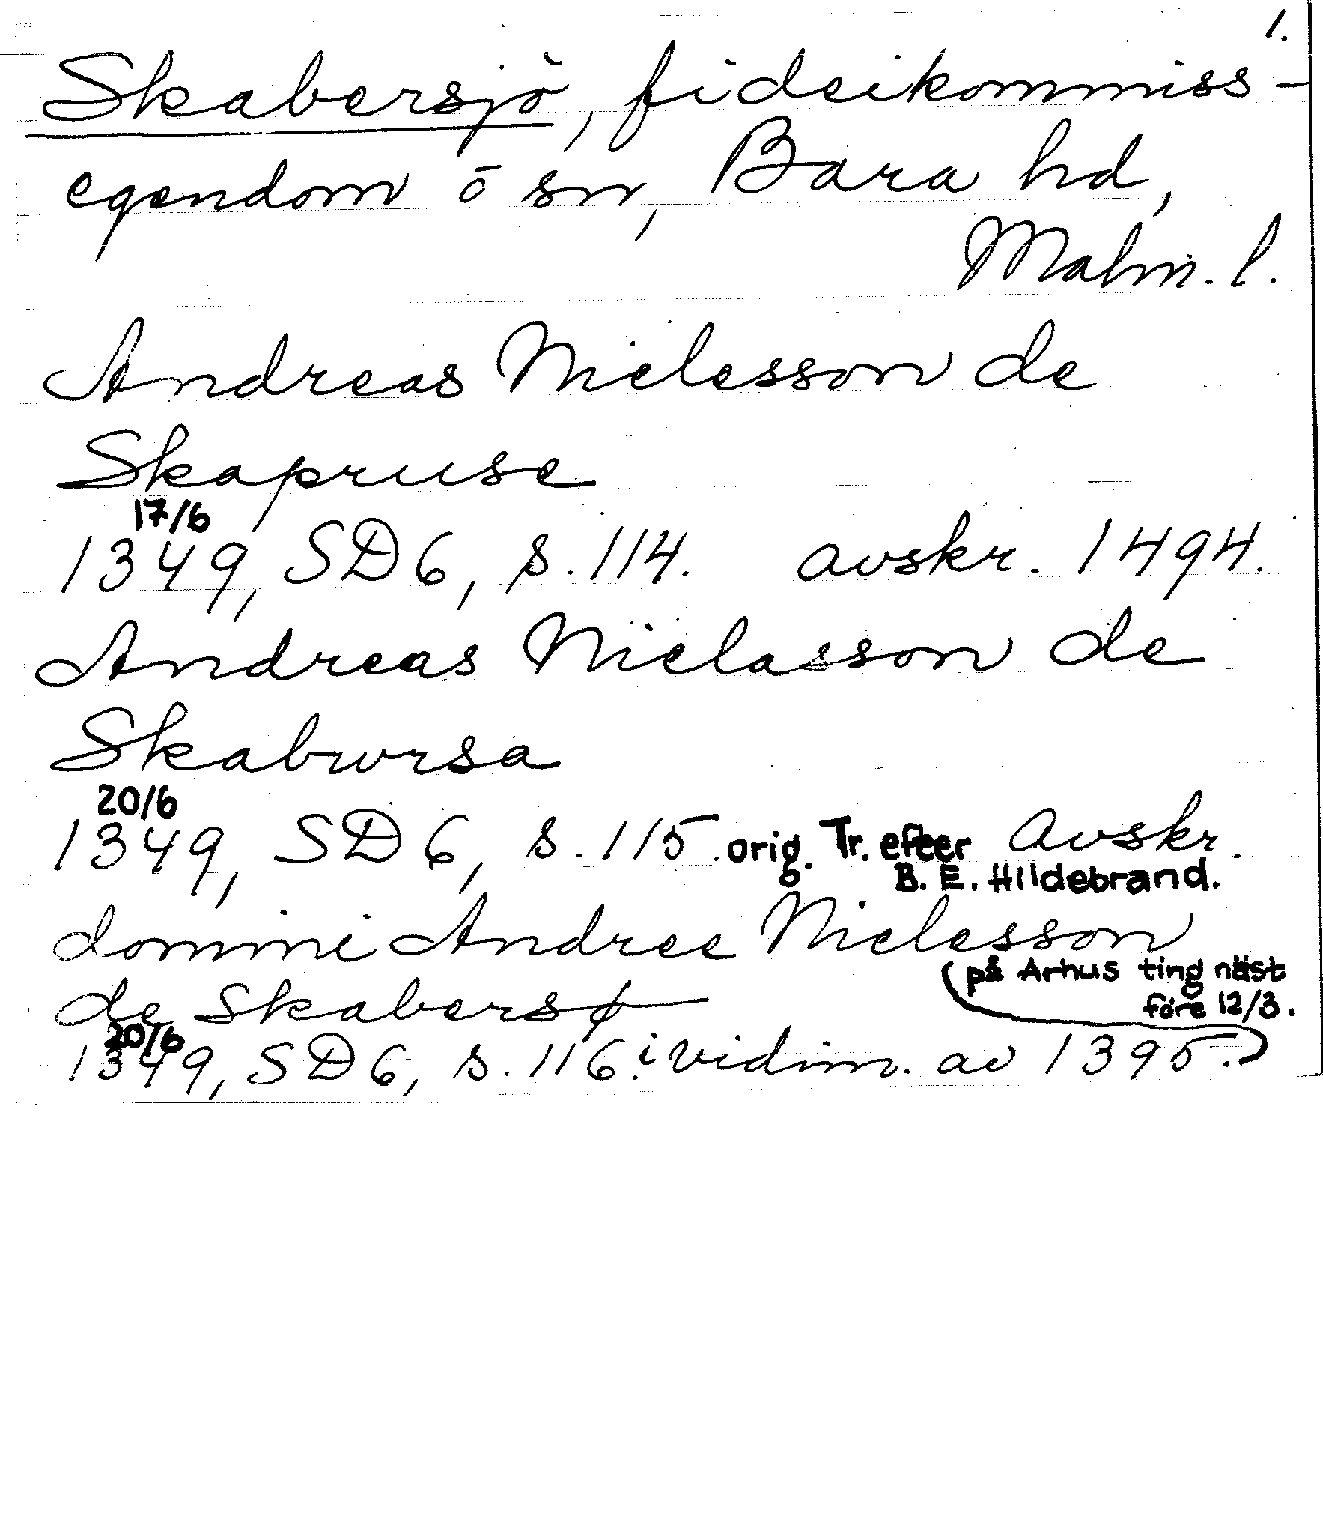 1.
Skabersjö, fideikommiss-
egendom o sn, Bara hd,
Malm. l.
Andreas Nielesson de
Skapruse
17/6
1349, SD 6, s. 114. avskr. 1494.
Andreas Nielasson de
Skaburrsa
20/6
1349, SD 6, s. 115. orig. Tr. efter avskr.
B. E. Hildebrand.
domini Andree Nielesson
på Arhus ting näst
de Skabersø
före 12/3.
20/6
1349, SD 6, s. 116. i vidim. av 1395.)